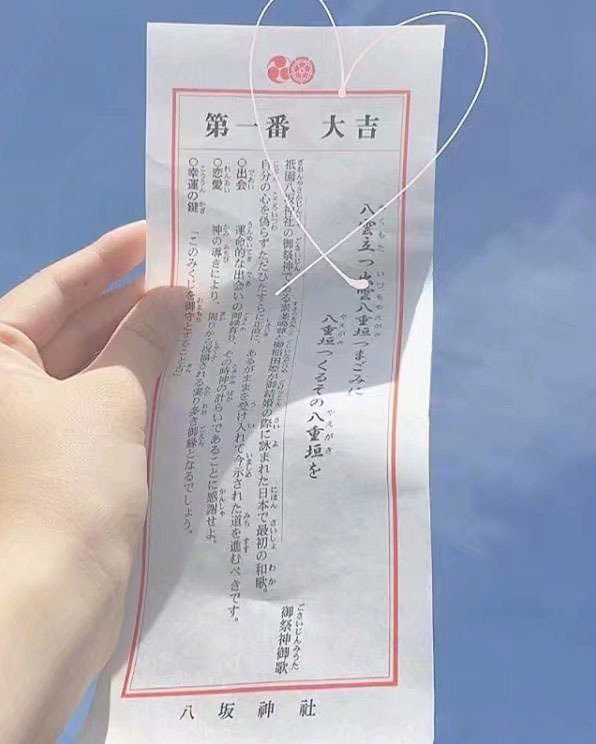 第一番 大吉
八雲立つ出雲八重垣つまごみに
八重垣つくるその八重垣を
御祭神御歌
祇園八坂神社の御祭神である素戔嗚尊と櫛稲田姫が御結婚の際に詠まれた日本で最初の和歌。
自分の心を偽らずただひたすらに正直に、あるがままを受け入れて今示された道を進むべきです。
○出会 運命的な出会いの御縁有り。その時神の計らいであることに感謝せよ。
○恋愛 神の導きにより、周りから祝福される実り多き御縁となるでしょう。
○幸運の鍵 「このみくじを御守とすること吉」
八坂神社